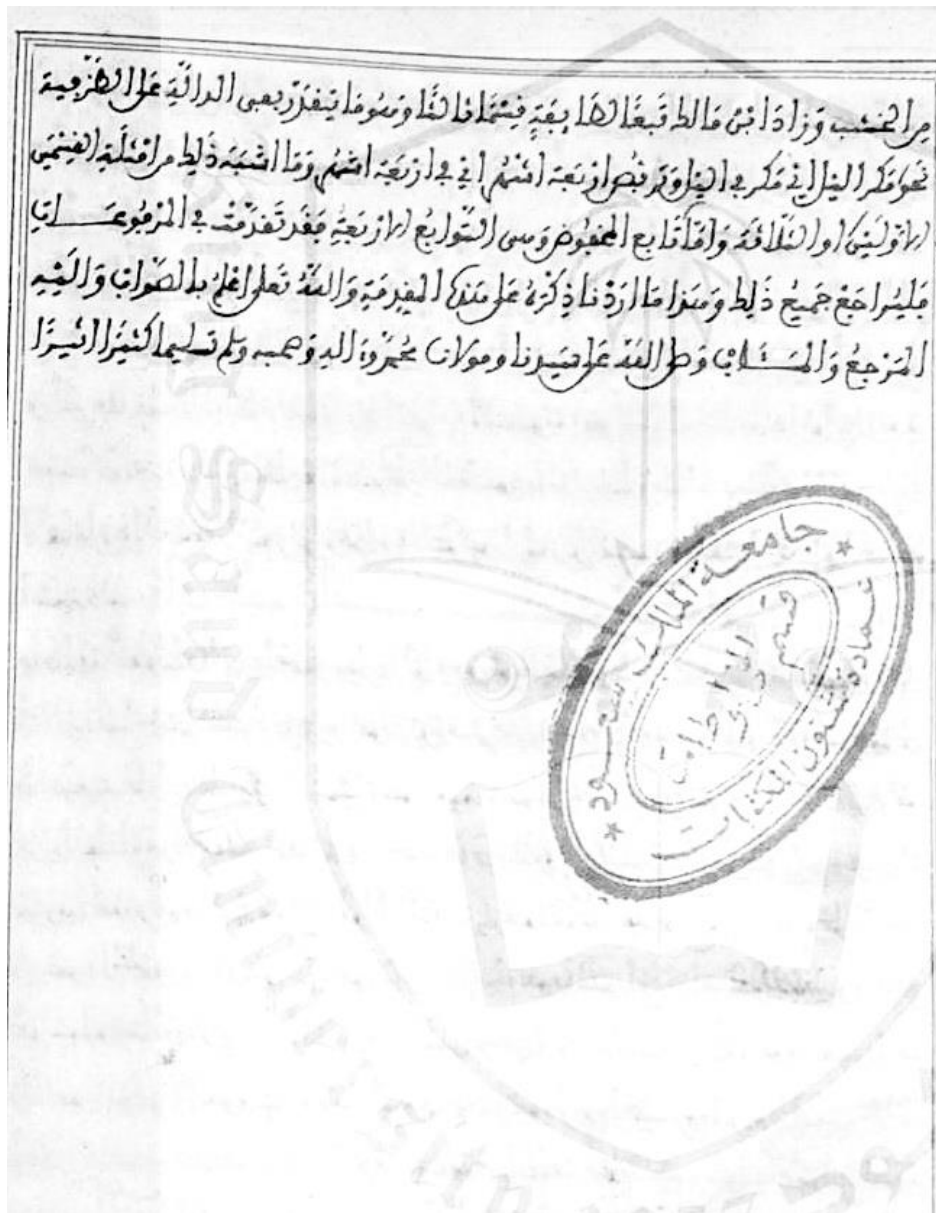 من الخشب وزاد ابن مالك تبعًا لطايفةٍ قسمًا ثالثًا وهو ما يقدّر بفى الدالّة على الظرفية
نحو مكر اليل اي مكر في اليل وتربص اربعة اشهر اي في اربعة اشهر وما اشبه ذلك من امثلة القسمين
الاولين او الثلاثة واما تابع المخفوض وهى التوابع الاربعة فقد تقدّمت في المرفوعات
فليراجع جميع ذلك وهذا ما اردنا ذكره على هذه المقدمة والله تعلى اعلم بالصواب واليه
المرجع والمئاب وصلى الله على سيدنا ومولانا محمد وءاله وصحبه وسلم تسليما كثيرا اثيرا
جامعة الملك سعود
عمادة شئون المكتبات
قسم المخطوطات